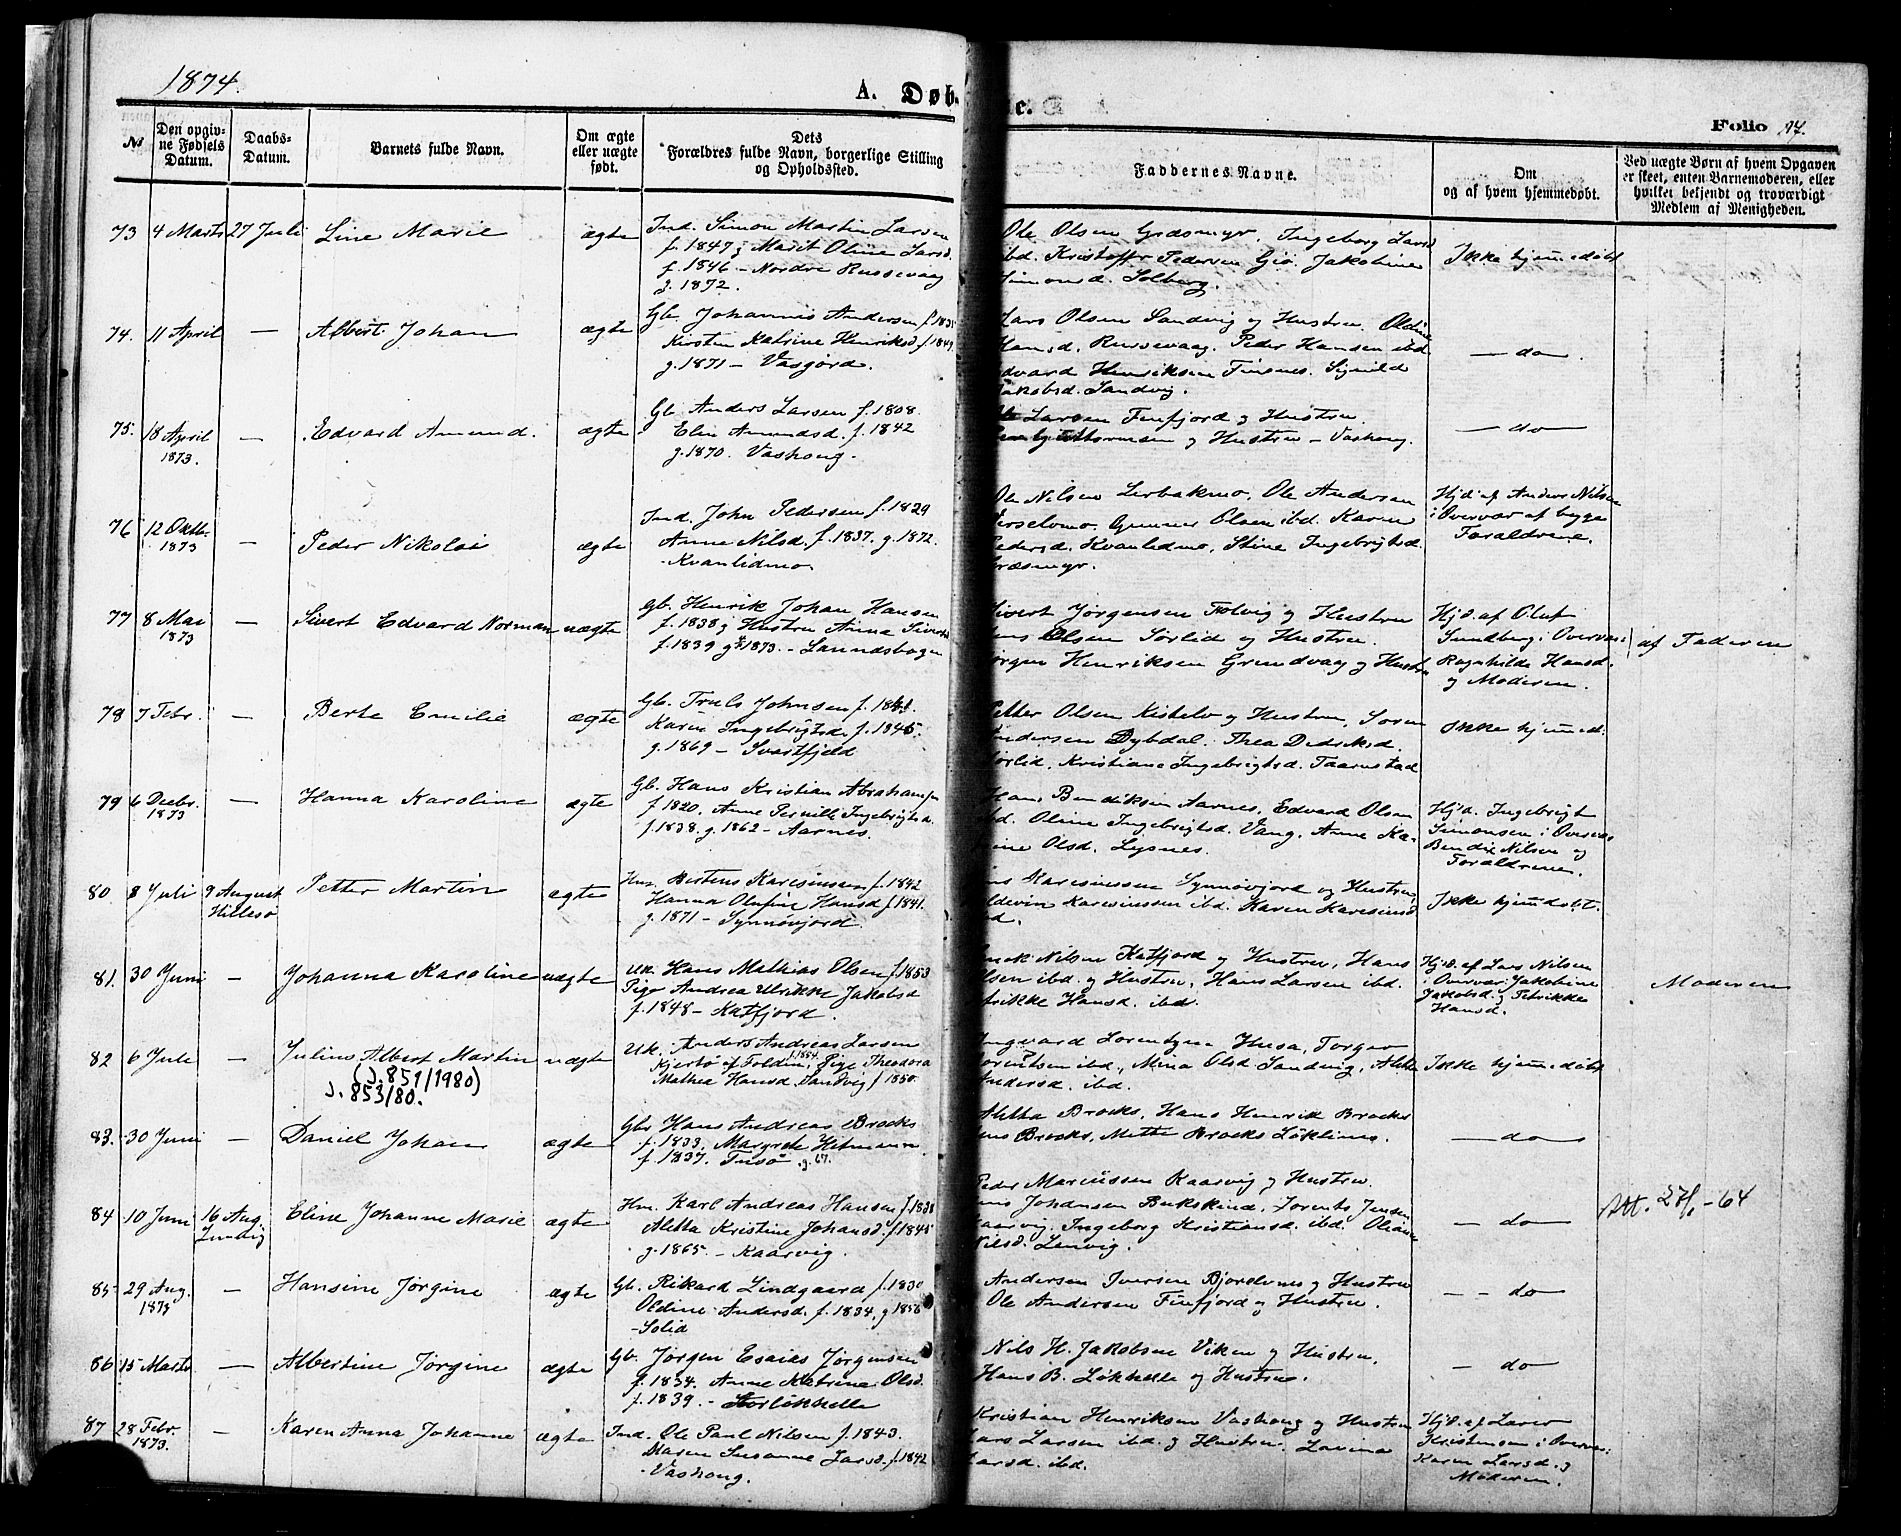 1874.
A. Døb-
te.
Folio 17.
№
Den opgiv-
ne Fødsels
Datum.
Daabs-
Datum.
Barnets fulde Navn.
Om ægte
eller uægte
født.
Dets
Forældres fulde Navn, borgerlige Stilling
og Opholdssted.
Faddernes Navne.
Om
og af hvem hjemmedøbt.
Ved uægte Børn af hvem Opgaven
er skeet, enten Barnemoderen, eller
hvilket bekjendt og troværdigt
Medlem af Menigheden.
73 4 Marts 27 Juli Line Marie ægte
Ind. Simon Martin Larsen
f. 1847 & Marit Oline Larsd.
f. 1846 – Nordre Russevaag
g. 1872.
Ole Olsen Græsmyr, Ingeborg Larsd
ibd. Kristoffr Pedersen Gio. Jakobine
Simonsd. Solberg.
Ikke hjemmedøbt
74. 11 April — Albert Johan ægte
Gb. Johannes Andersen f. 1835
Kirsten Katrine Henriksd. f. 1849
g. 1871 – Vasgjord.
Lars Olsen Sandvig og Hustru. Oldine
Hansd. Russevaag. Peder Hansen ibd
Edvard Henriksen Finsnes. Signild
Jakobsd. Sandvig.
— do —
75. 18 April
1873. — Edvard Amund. ægte
Gb. Anders Larsen f. 1808.
Elen Amundsd. f. 1842
g. 1870. Vashoug.
Ole Larsen Finfjord og Hustru
og Hustru – Vashoug.
— do —
76 12 Oktb.
1873 — Peder Nikolai ægte
Ind. John Pedersen f. 1829
Anne Nilsd. f. 1837. g. 1872.
– Kvanlidmo
Ole Nilsen Lerbakmo, Ole Andersen
Gunner Olsen ibd. Karen
Pedersd. Kvanlidmo, Stine Ingebrigtsd.
Græsmyr.
Hjd. af Anders Nilsen
i Overvær af begge
Forældrene.
77 8 Mai
1873 — Sivert Edvard Norman uægte
Gb. Henrik Johan Hansen
f. 1838 & Hustru Anna Sivertsd
f. 1839 g. 1873. – Laundsbogen
Sivert Jørgensen Tolvig og Hustru
Jens Olsen Sørlid og Hustru.
Jørgen Henriksen Grundvaag og Hustru
Hjd. af Oluf
Sundberg i Overvær
Ragnhilda Hansd.
og Moderen.
af Faderen
78 7 Febr. — Berte Emilie ægte
Gb. Truls Johnsen f. 1841.
Karen Ingebrigtsd. f. 1845.
g. 1869 – Svartfjeld
Petter Olsen Kistelv og Hustru, Søren
Andersen Dybdal. Thea Didriksd.
Sørlid. Kristiane Ingebrigtsd. Taarnstad
Ikke hjemmed.
79 6 Decbr.
1873 — Hanna Karoline ægte
Gb. Hans Kristian Abrahamsen
f. 1820. Anne Pernille Ingebrigtsd.
f. 1838. g. 1862 – Aarnes.
Hans Bendiksen Aarnes, Edvard Olsen
ibd. Oline Ingebrigtsd. Vang. Anne Ka-
rine Olsd. Lysnes.
Hjd. Ingebrigt
Simonsen i Overvær
Bendix Nilsen og
Forældrene.
80. 8 Juli 9 August
Hillesø Petter Martin ægte
Hm. Bertens Karesiussen f. 1842
Hanna Olufine Hansd f. 1841.
g. 1871 – Synnøvjord.
Jens Karesiussen Synnøvjord og Hustru
Edevin Karesiussen ibd. Karen Karesiusd
ibd.
Ikke hjemdøbt.
81. 30 Juni — Johanna Karoline uægte
Uk. Hans Mathias Olsen f. 1853
Pige Andrea Ulrikke Jakobsd
f. 1848 – Katfjord.
Enok Nilsen Katfjord og Hustru, Hans
Olsen ibd. og Hustru, Hans Larsen ibd.
Petrikke Hansd. ibd.
Hjd. af Lars Nilsen
i Overvær Jakobine
Jakobsd. & Petrikke
Hansd.
Moderen
82 6 Juli — Julius Albert Martin uægte
(J. 851/1980)
J. 853/80.
Uk. Anders Andreas Larsen
Kjertø af Folden, f. 1854. Pige Theodora
Mathea Hansd. Sandvig f 1850.
Ingvard Lorentzen Husø, Torger
Lorentsen ibd., Mina Olsd Sandvig, Aletta
Andersd. ibd.
Ikke hjemmedøbt
83. 30 Juni — Daniel Johan ægte
Gbr Hans Andreas Brocks
f. 1833. Margrete Heitmann
f. 1837. Tusø g. 67.
Aletha Brocks, Hans Henrik Brocks
Jens Brocks, Mette Brocks Løklimo.
— do —
84 10 Juni 16 Aug.
Lenvig Eline Johanne Marie ægte
Hm. Karl Andreas Hansen f. 1838
Aletta Kristine Johansd. f. 1845
g. 1865 – Kaarvig.
Peder Mariussen Kaarvig og Hustru.
Jens Johansen Bukskind, Lorents Jensen
Kaarvig, Ingeborg Kristiansd. ibd. Oliane
Nilsd. Lenvig.
— do —
Att. 27/1 –64
85 29 Aug.
1873 — Hansine Jørgine ægte
Gb. Rikard Lindgaard f. 1830
Oldine Andersd. f. 1834. g 1856
– Solid
Andersen Iversen Bjorelvnes og Hustru
Ole Andersen Finfjord og Hustru.
— do
86 15 Marts — Albertine Jørgine ægte
Gb. Jørgen Esaias Jørgensen
f. 1834. Anne Katrine Olsd.
f. 1839. – Storløkhelle
Nils H. Jakobsen Viken og Hustru,
Hans B. Løkhelle og Hustru.
— do —
87 28 Febr.
1873. — Karen Anna Johanne ægte
Ind. Ole Paul Nilsen f. 1843.
Maren Susanne Larsd. f. 1842
– Vashoug.
Kristian Henriksen Vashoug og Hustru
Lars Larsen ibd. og Hustru. Lovina
Larsd. ibd.
Hjd. af Laver
Kristensen i Overvær
Karen Larsd. og
Moderen.